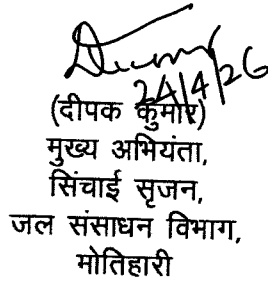 24/4/26
(दीपक कुमार)
मुख्य अभियंता,
सिंचाई सृजन,
जल संसाधन विभाग,
मोतिहारी